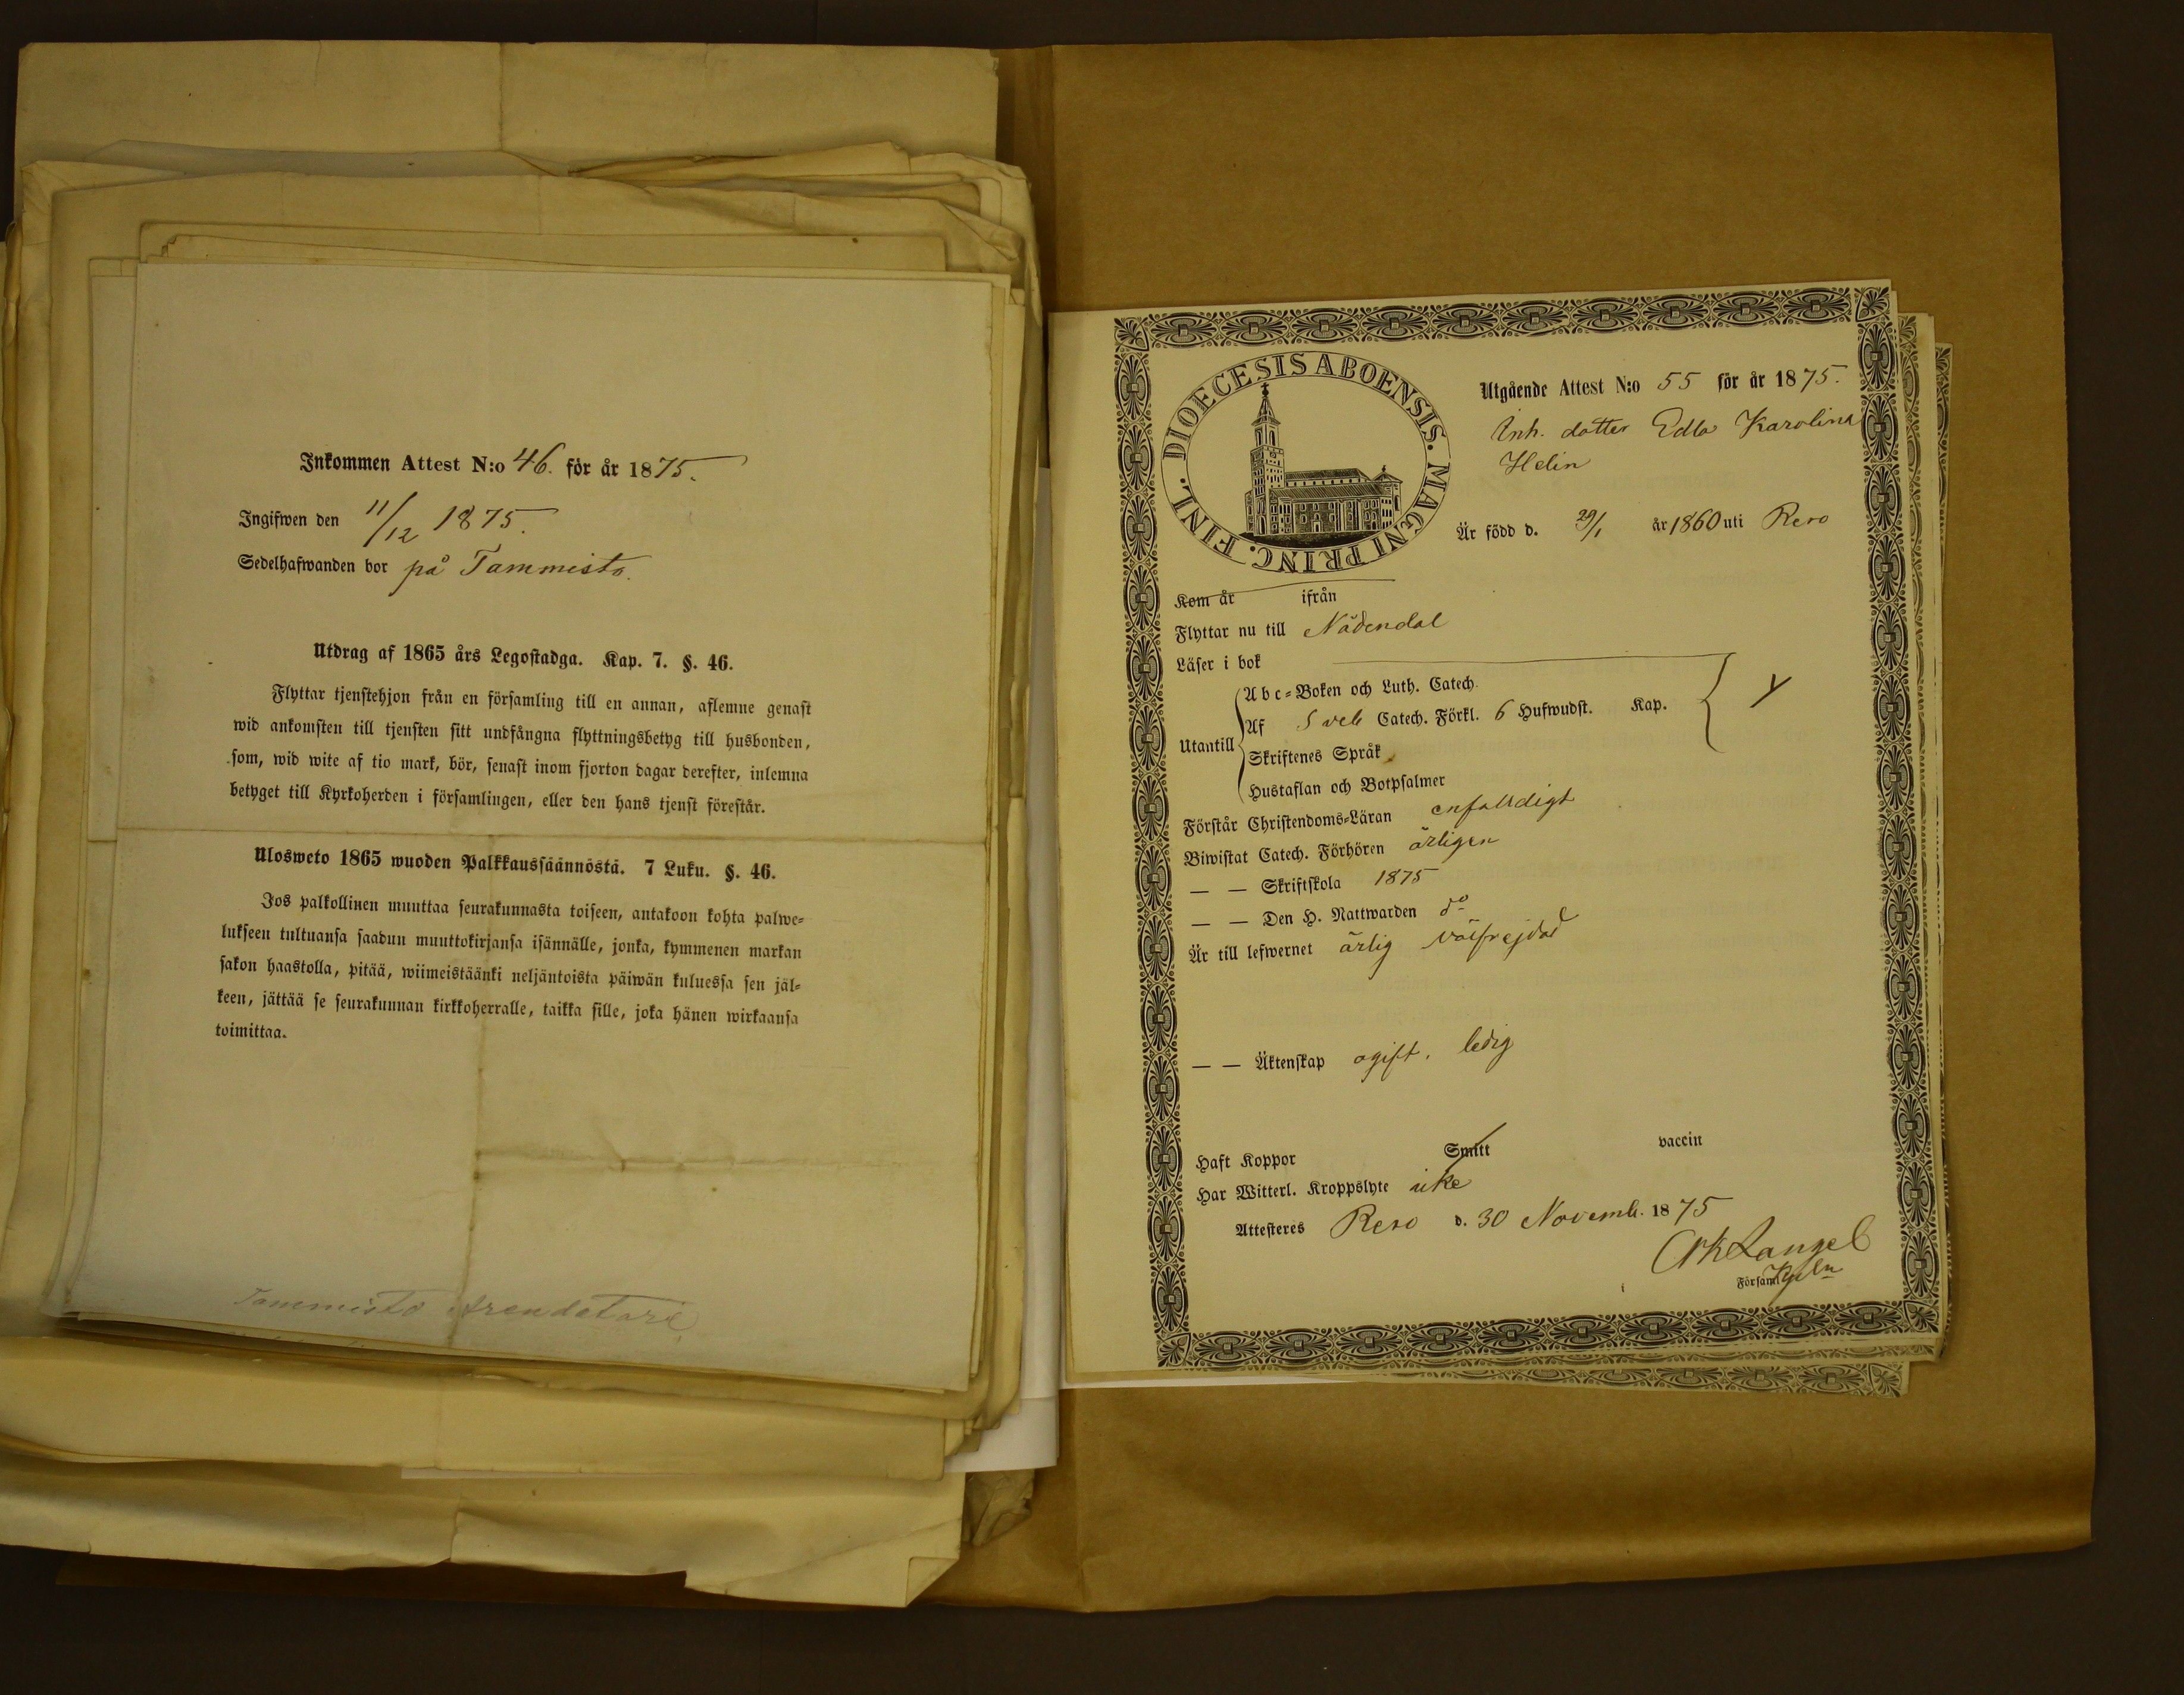 Inkommen Attest N:o 46. för år 1875.
Ingifwen den 11/12 1875.
Sedelhafwanden bor på Tammisto.
Utdrag af 1865 års Legostadga. Kap. 7. §. 46.
Flyttar tjenstehjon från en församling till en annan, aflemne genast
wid ankomsten till tjensten sitt undfångna flyttningsbetyg till husbonden,
som, wid wite af tio mark, bör, senast inom fjorton dagar derefter, inlemna
betyget till Kyrkoherden i församlingen, eller den hans tjenst förestår.
Ulosweto 1865 wuoden Palkkaussäännöstä. 7 Luku. §. 46.
Jos palkollinen muuttaa seurakunnasta toiseen, antakoon kohta palwe-
lukseen tultuansa saadun muuttokirjansa isännälle, jonka, kymmenen markan
sakon haastolla, pitää, wiimeistäänki neljäntoista päiwän kuluessa sen jäl-
keen, jättää se seurakunnan kirkkoherralle, taikka sille, joka hänen wirkaansa
toimittaa.
Tammisto Arendatare
DIOECESIS ABOENSIS. MAGNI PRINC. FINL.
Utgående Attest N:o 55 för år 1875.
Inh. dotter Edla Karolina
Helin
Är född d. 29/1 år 1860 uti Reso
Kom år ifrån
Flyttar nu till Nådendal
Läser i bok
Utantill
Abc-Boken och Luth. Catech.
Af Sveb Catech. Förkl. 6 Hufwudst. Kap.
Skriftenes Språk
Hustaflan och Botpsalmer
Förstår Christendoms-Läran enfalldigt
Biwistat Catech. Förhören årligen
— — Skriftskola 1875
— — Den H. Nattwarden do
Är till lefwernet ärlig välfrejdad
— — Äktenskap ogift. ledig
Haft Koppor Smitt vaccin
Har Witterl. Kroppslyte icke
Attesteres Reso d. 30 Novemb. 1875
Langel
Församl